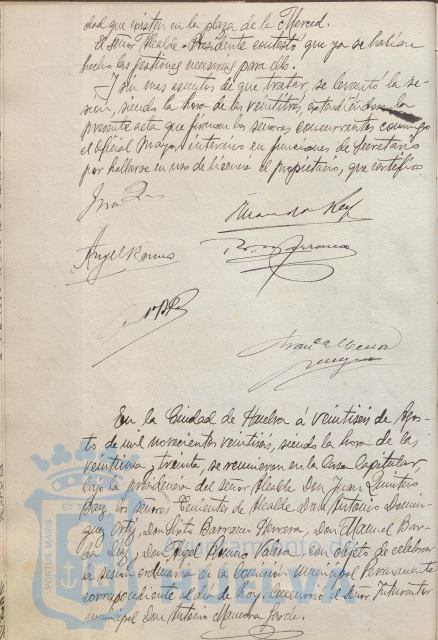 dad que existen en la plaza de la Merced.
El Señor Alcalde-Presidente contestó que ya se habían
hecho las gestiones necesarias para ello.
Y sin mas asuntos de que tratar, se levantó la se-
sion, siendo la hora de las veintitrés, extendiéndose la
presente acta que firman los señores concurrentes conmigo
el Oficial Mayor interino en funciones de Secretario
por hallarse en uso de licencia el propietario, que certifico.
Angel Romo
En la Ciudad de Huelva á veintiseis de Agos-
to de mil novecientos veintiséis, siendo la hora de las
veintiuna treinta, se reunieron en la Casa Capitular,
bajo la presidencia del señor Alcalde Don Juan Quintero
Baez, los señores Tenientes de Alcalde Don Antonio Domin-
guez Ortiz, Don Sixto Barranco Herrera, Don Manuel Bar-
ba Diaz y Don Angel Romo Valera con objeto de celebrar
la sesión ordinaria de la Comisión Municipal Permanente
correspondiente al dia de hoy. Concurrió el señor Interventor
municipal Don Antonio
PORTUS MARIS
Ayuntamiento de
HUELVA